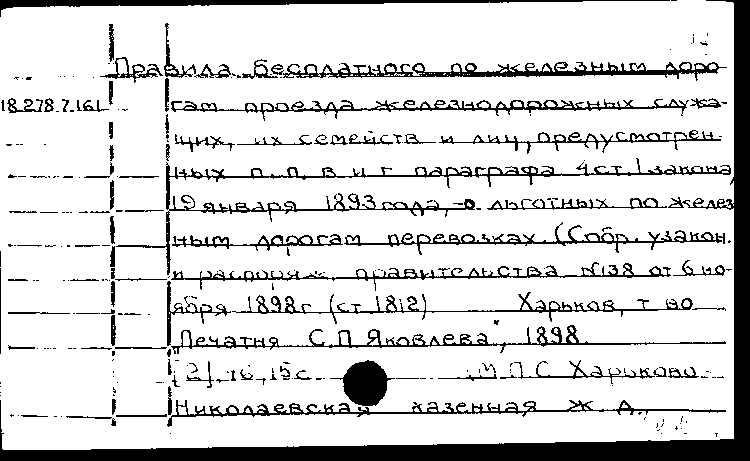 Правила бесплатного по железным доро-
18.278.7.161 гам проезда железнодорожных служа-
щих, их семейств и лиц, предусмотрен-
ных п.п. в и г параграфа 4 ст. 1 закона,
19 января 1893 года, о льготных по желез
ным дорогам перевозках. (Собр. узакон.
и распоряж. правительства №138 от 6 но-
ября 1898 г. (ст. 1812) Харьков, т-во
"Печатня С.П. Яковлева", 1898.
[2], 16, 15 с. (М.П.С. Харьково-
Николаевская казенная ж. д.